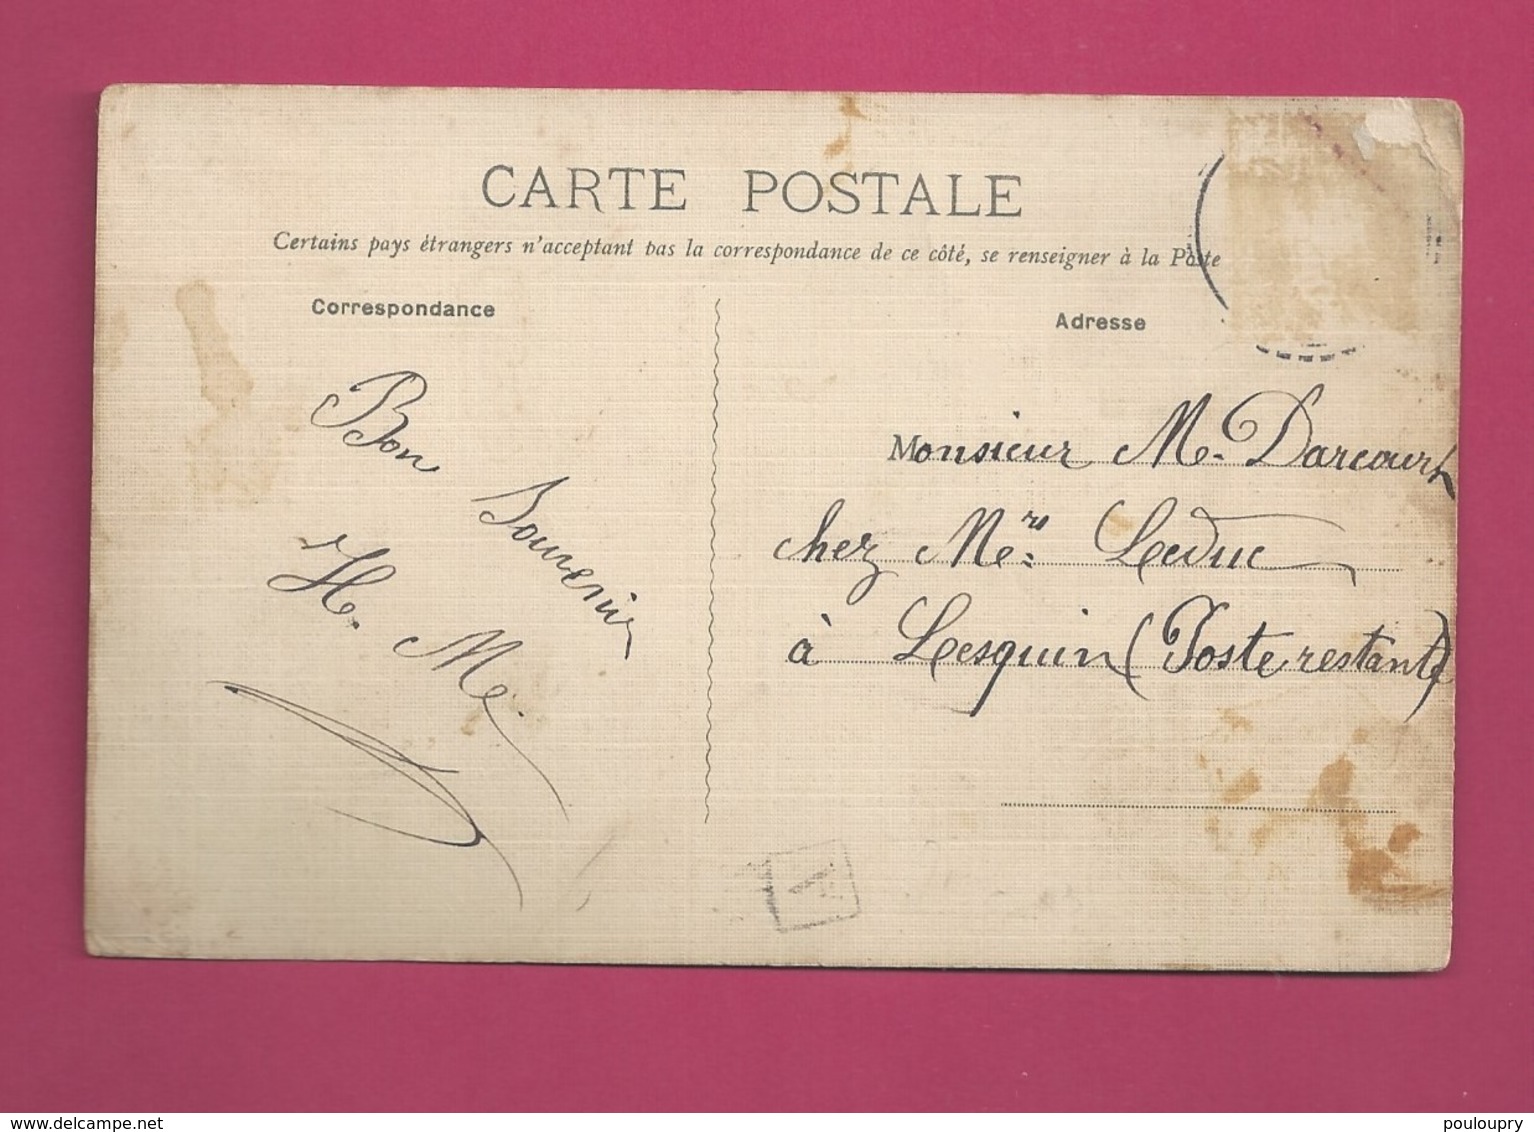 CARTE POSTALE
Certains pays étrangers n'acceptant pas la correspondance de ce côté, se renseigner à la Poste
Correspondance
Adresse
Bon
Souvenir
H. M
Monsieur M. Darcourt
chez Mers Leduc
à Lesquin (Poste restante)
www.delcampe.net
pouloupry